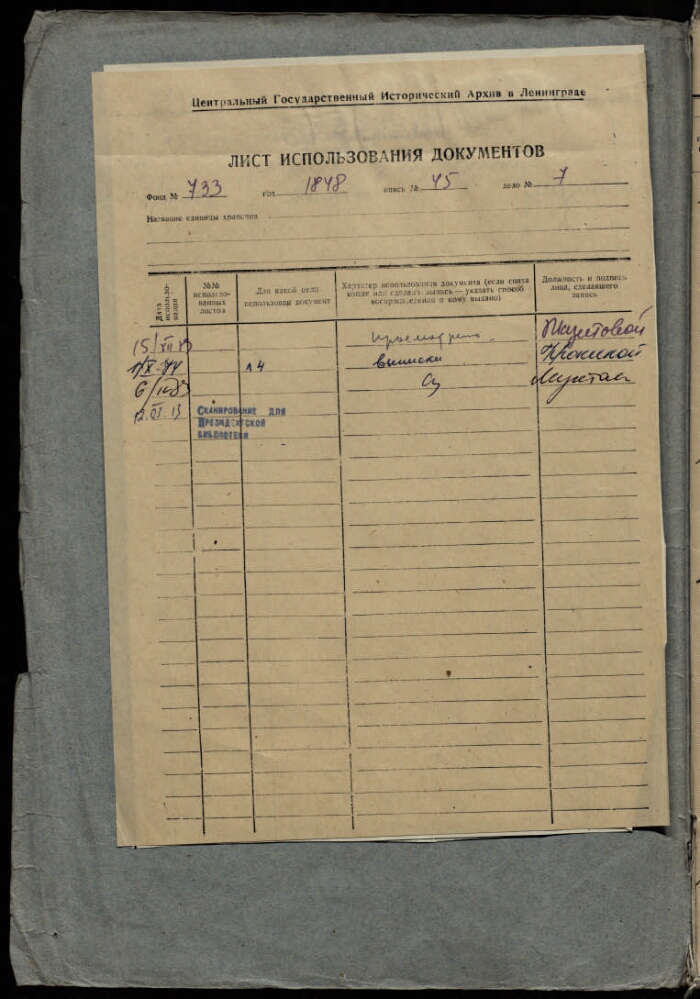 Центральный Государственный Исторический Архив в Ленинграде
ЛИСТ ИСПОЛЬЗОВАНИЯ ДОКУМЕНТОВ
Фонд № 733 год 1848 опись № 45 дело № 7
Название единицы хранения
Дата использования
№№ использованных листов
Для какой цели использован документ
Характер использования документа (если снята
копия или сделана выпись — указать способ
воспроизведения и кому выдано)
Должность и подпись
лица, сделавшего
запись
просмотрено
выписки
12.III.13 Сканирование для
Президентской
библиотеки